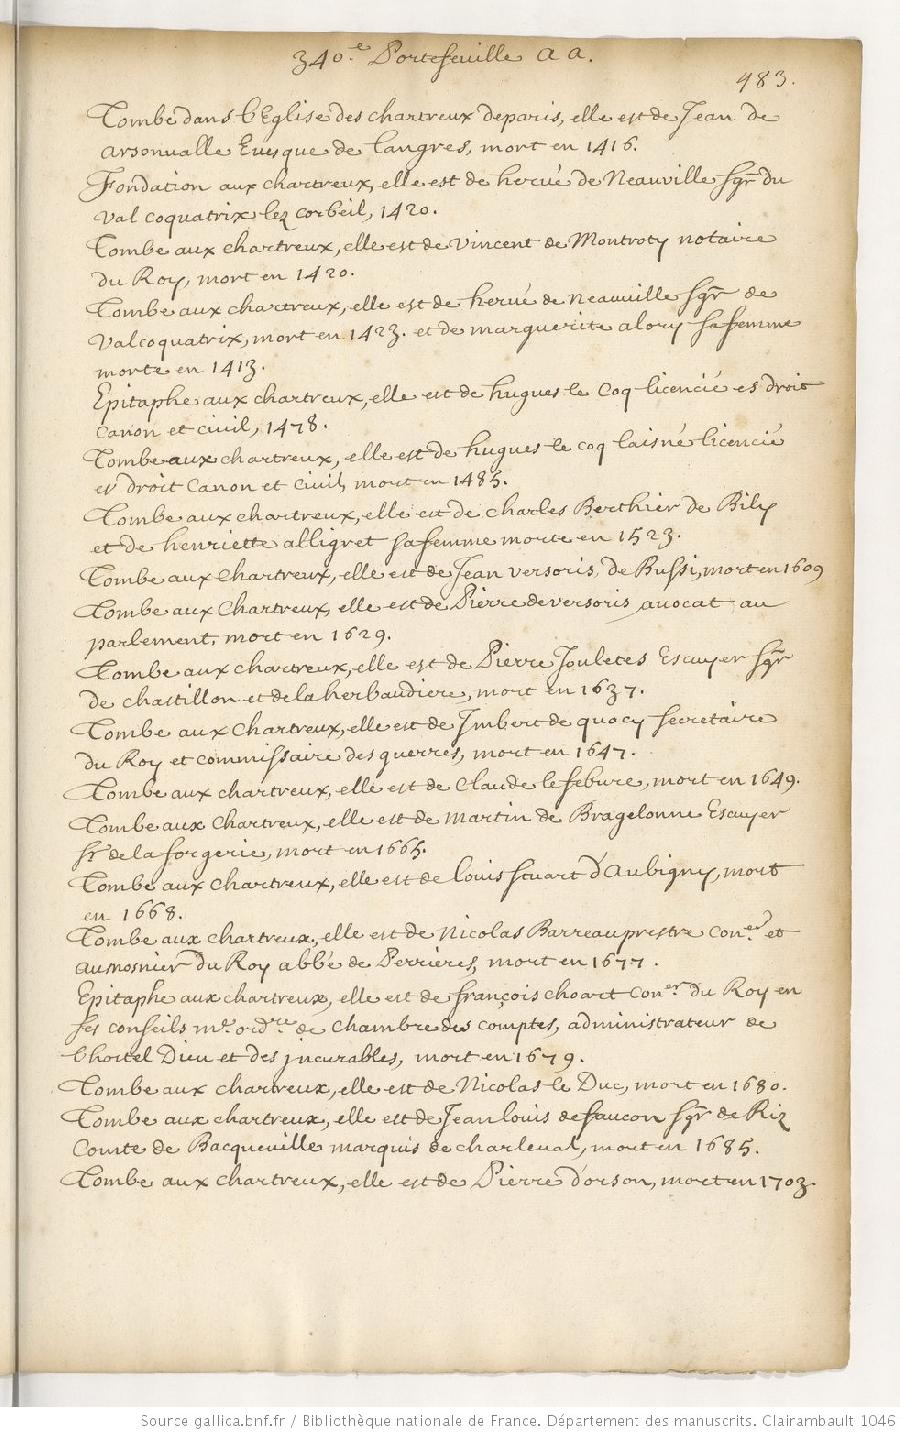 340.e Portefeuille a a.
483.
Tombe dans l'Eglise des chartreux de paris, elle est de Jean de
arsonualle Euesque de Langres, mort en 1416.
Fondation aux chartreux, elle est de herué de Neauville sgr du
val coquatrix lez corbeil, 1420.
Tombe aux chartreux, elle est de vincent de Montroty notaire
du Roy, mort en 1420.
Tombe aux chartreux, elle est de herué de neauuille sgr de
valcoquatrix, mort en 1423. et de marguerite alory sa femme
morte en 1413.
Epitaphe aux chartreux, elle est de hugues le Coq licencié es droit
canon et ciuil, 1478.
Tombe aux chartreux, elle est de hugues le coq laisné licencié
es droit Canon et Ciuil, mort en 1485.
Tombe aux chartreux, elle est de charles Berthier de Bily
et de henriette alligret sa femme morte en 1523.
Tombe aux chartreux, elle est de Jean versoris, de Bussi, mort en 1609
Tombe aux Chartreux, elle est de Pierre de versoris auocat au
parlement, mort en 1629.
Tombe aux chartreux, elle est de Pierre Jouletes Escuyer sgr
de chastillon et de la herbaudiere, mort en 1637.
Tombe aux Chartreux, elle est de Jmbert de quocy secretaire
du Roy et commissaire des guerres, mort en 1647.
Tombe aux chartreux, elle est de Claude lefebure, mort en 1649.
Tombe aux Chartreux, elle est de Martin de Bragelonne Escuyer
sr de la forgerie, mort en 1665.
Tombe aux chartreux, elle est de louis stuart d'Aubigny, mort
en 1668.
Tombe aux chartreux, elle est de Nicolas Barreau prestre Coner et
aumosnier du Roy abbé de Perrieres, mort en 1677.
Epitaphe aux chartreux, elle est de françois choart Coner du Roy en
ses conseils me ordre de chambre des comptes, administrateur de
l'hostel Dieu et des jncurables, mort en 1679.
Tombe aux chartreux, elle est de Nicolas le Duc, mort en 1680.
Tombe aux chartreux, elle est de Jean louis de faucon sgr de Riz
Comte de Bacqueuille marquis de charleual, mort en 1685.
Tombe aux chartreux, elle est de Pierre d'orson, mort en 1703.
Source gallica.bnf.fr / Bibliothèque nationale de France. Département des manuscrits. Clairambault 1046